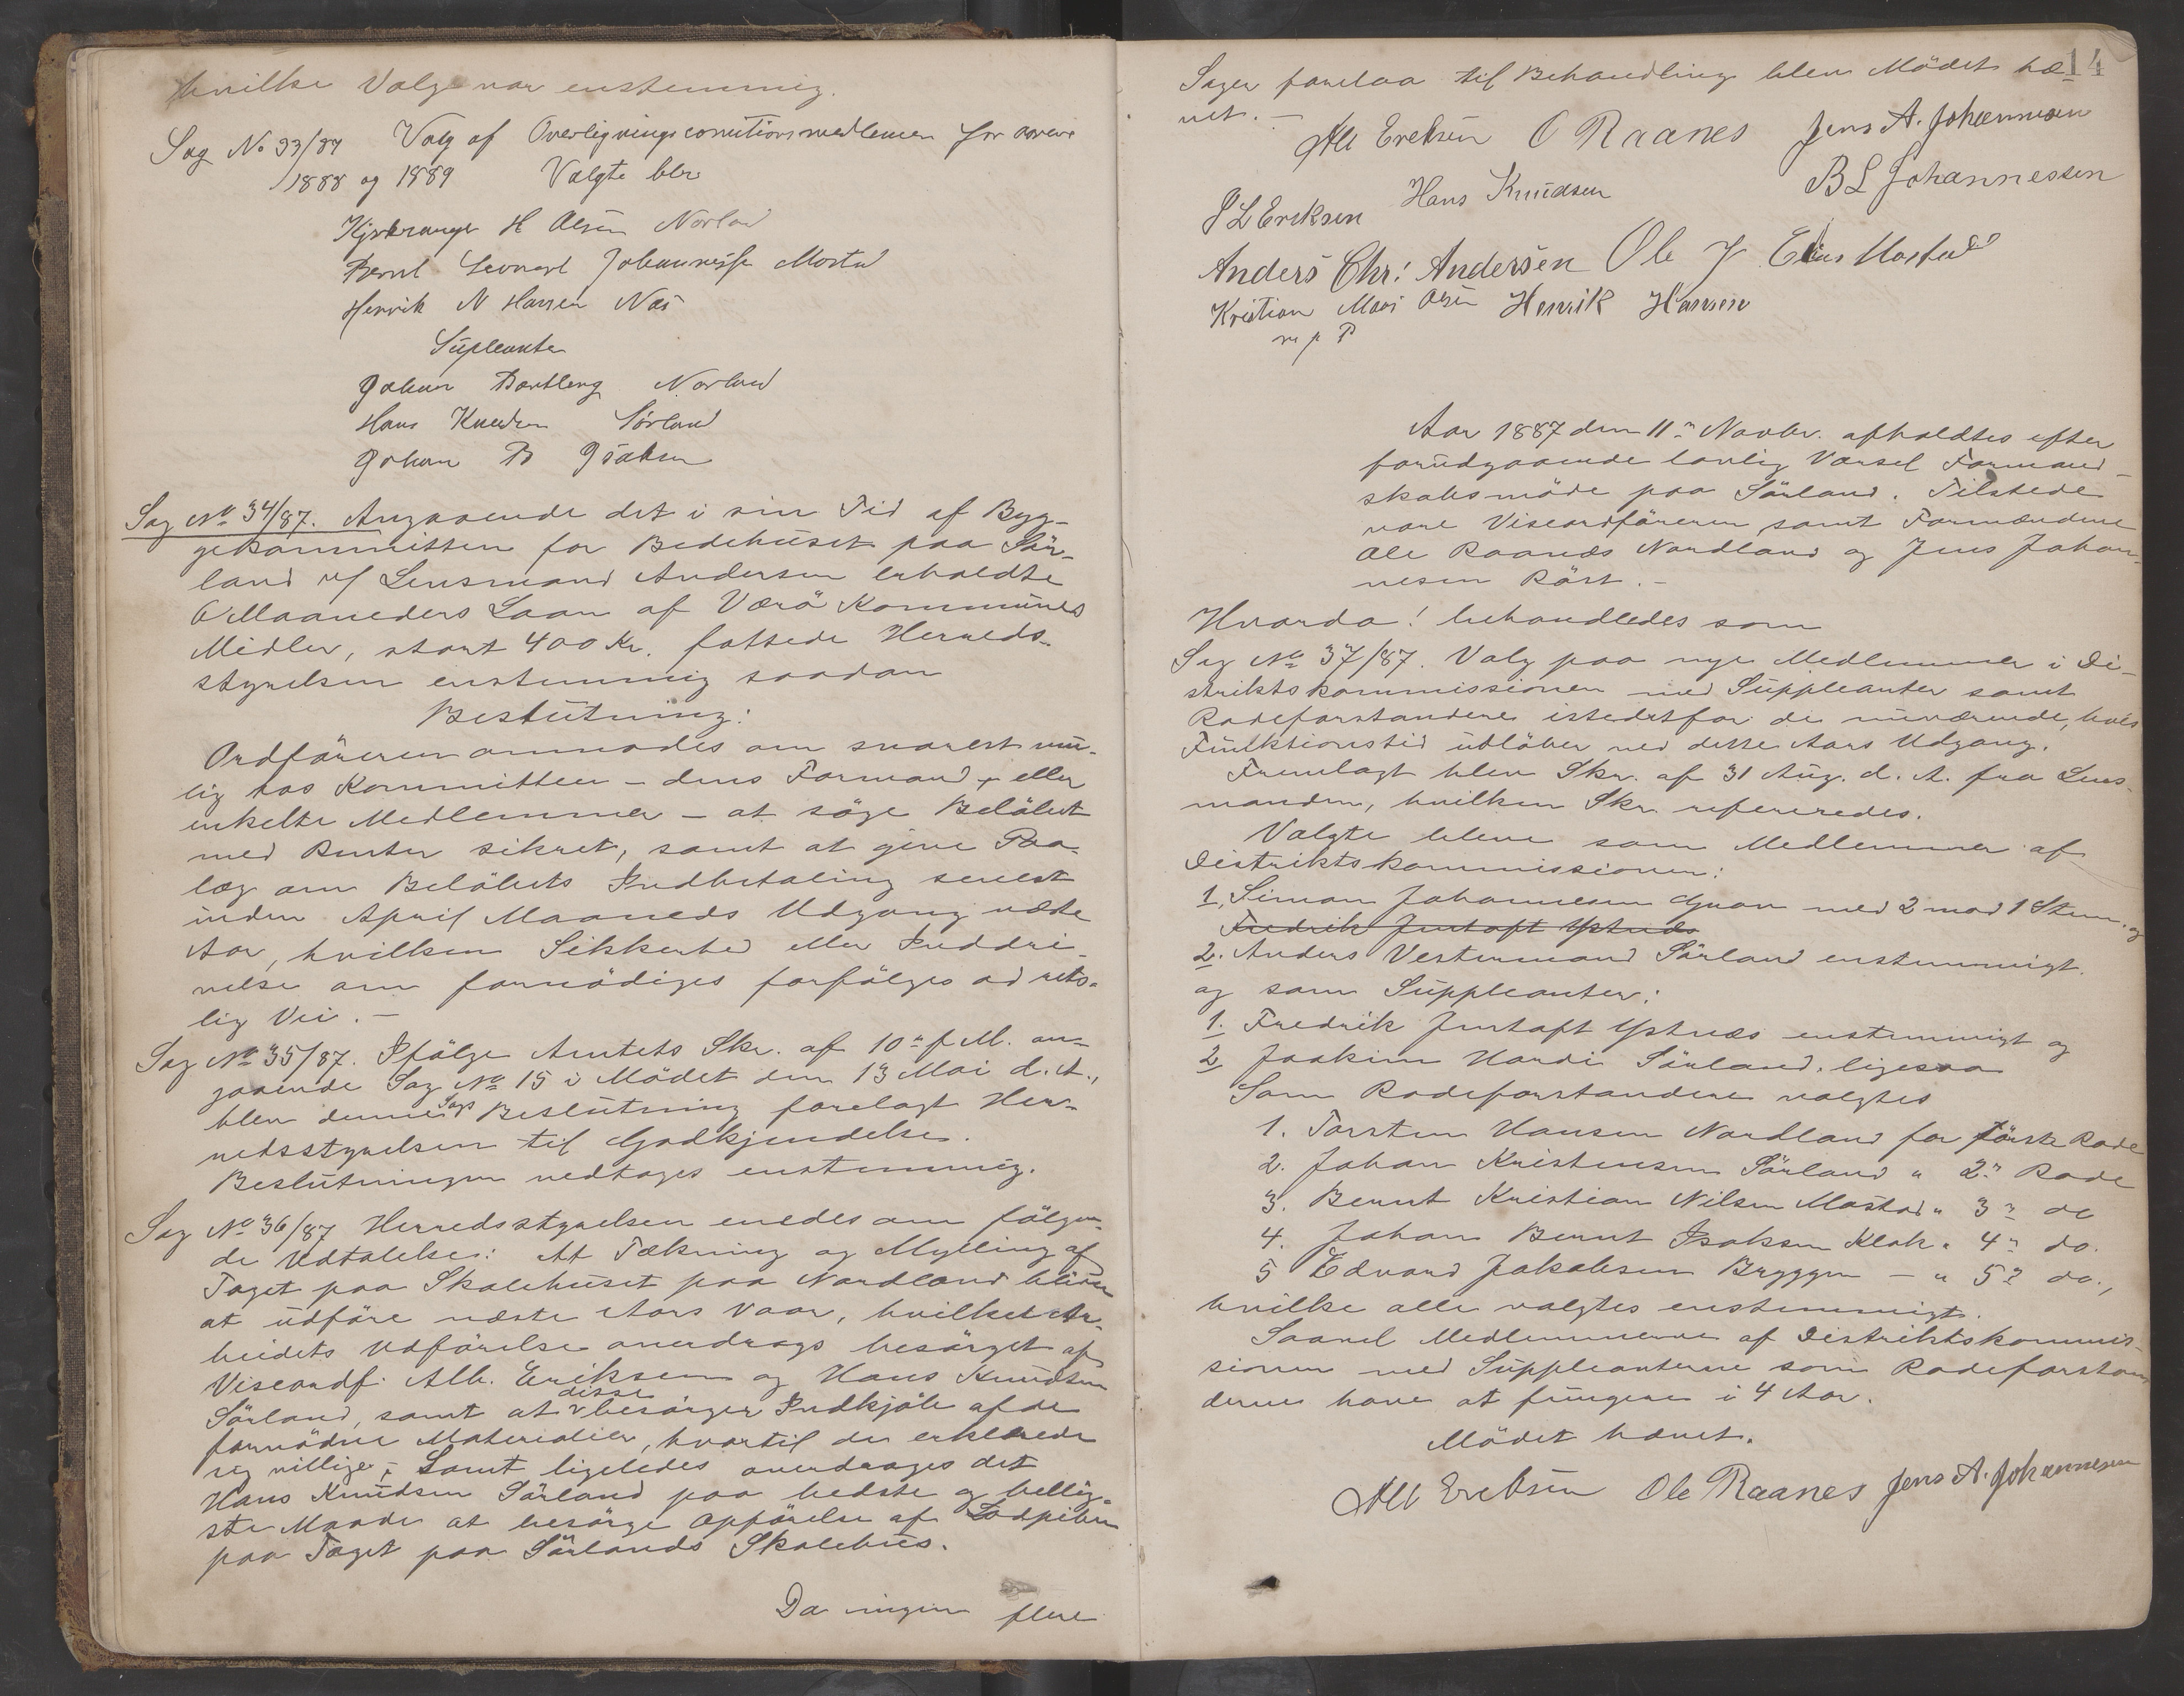 hvilke Valge var enstemmig.
Sag No 33/87 Valg af Overligningscomitionsmedlemer for aarene
1888 og 1889 Valgte blev
Kjerkesanger H Olsen Norland
Bernt Leonart Johannessen Mostad
Henrik N Hansen Næs
Supleanter
Johan Bertberg Norland
Hans Knudsen Sørland
Johan B Isaksen
Sag No 34/87. Angaaende det i sin Tid af Byg-
gekommitteen for Bedehuset paa Sör-
land v/ Lensmand Andersen erholdte
6 Maaneders Laan af Værö Kommunes
Midler, stort 400 Kr. fattede Herreds-
styrelsen enstemmig saadan
Beslutning:
Ordföreren anmodes om snarest mu-
lig hos Kommitteen – dens Formand, eller
enkelte Medlemmer – at söge Belöbet
med Renter sikret, samt at give Paa-
læg om Belöbets Indbetaling senest
inden April Maaneds Udgang næste
Aar, hvilken Sikkerhed eller Inddri-
velse om fornödiges forfölges ad rets-
lig Vei. –
Sag No 35/87. Ifölge Amtets Skr. af 10de f. M. an-
gaaende Sag No 15 i Mödet den 13 Mai d. A.,
blev denne Sags Beslutning forelagt Her-
redsstyrelsen til Godkjendelse.
Beslutningen vedtages enstemmig.
Sag No 36/87 Herredsstyrelsen enedes om fölgen-
de Udtalelse: At Tækning og Mylling af
Taget paa Skolehuset paa Nordland bliver
at udföre næste Aars Vaar, hvilket Ar-
beidets Udförelse overdrages besörget af
Viseordf. Alb. Eriksen og Hans Knudsen
Sörland, samt at disse besörger Indkjöb af de
fornödne Materialier, hvortil de erklærede
sig villige; Samt ligeledes overdrages det
Hans Knudsen Sörland paa bedste og billig-
ste Maade at besörge Opförelse af Lodpiben
paa Taget paa Sörlands Skolehus.
Da ingen flere
14
Sager forelaa til Behandling blev Mödet hæ-
vet. –
Alb Ereksen O Raanes Jens A. Johannesen
P L Ereksen Hans Knudsen B L Johannessen
Anders Chr: Andersen Ole J Elias Mostad
Kristian Moor Olsen Henrik Hansen
m p P
Aar 1887 den 11te Novbr. afholdtes efter
forudgaaende lovlig Varsel Formand-
skabsmöde paa Sörland. Tilstede
vare Viseordföreren samt Formændene
Ole Raanæs Nordland og Jens Johan-
nesen Röst. –
Hvorda! behandledes som
Sag No 37/87. Valg paa nye Medlemmer i Di-
striktskommissionen med Suppleanter samt
Rodeforstandere istedetfor de nuværende, hvis
Funktionstid udlöber ved dette Aars Udgang.
Fremlagt blev Skr. af 31 Aug. d. A. fra Lens-
manden, hvilken Skr. refereredes.
Valgte bleve som Medlemmer af
Distriktskommissionen:
1. Simon Johannesen Gran med 2 mod 1 Stem. og
Fredrik Jentoft Ystnæs
2. Anders Vestermand Sörland enstemmigt.
og som Suppleanter:
1. Fredrik Jentoft Ystnæs enstemmigt og
2 Joakim Hardi Sörland. ligesaa
Som Rodeforstandere valgtes
1. Torsten Hansen Nordland for förste Rode
2. Johan Kristensen Sörland " 2den Rode
3. Bernt Kristian Nilsen Mostad " 3de do
4. Johan Bernt Isaksen Klak " 4de do.
5 Edvard Jakobsen Bryggen – " 5te do.,
hvilke alle valgtes enstemmigt.
Saavel Medlemmerne af Distriktskommis-
sionen med Suppleanterne som Rodeforstan-
derne have at fungere i 4 Aar.
Mödet hævet.
Alb Ereksen Ole Raanes Jens A. Johannesen